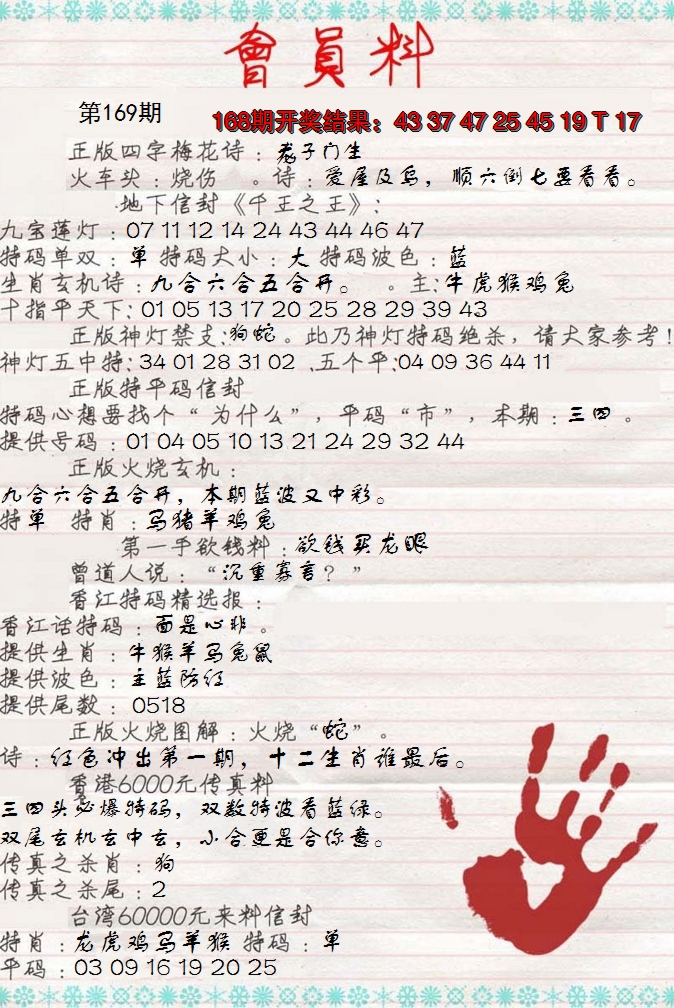 會員料
第169期
168期开奖结果：43 37 47 25 45 19 T 17
正版四字梅花诗：龙子门生
火车头：烧伤 。诗：爱屋及乌，顺六倒七要看看。
·地下信封《千王之王》：
九宝莲灯：07 11 12 14 24 43 44 46 47
特码单双：单 特码大小：大 特码波色：蓝
生肖玄机诗：九合六合五合开。 。主：牛虎猴鸡兔
十指平天下：01 05 13 17 20 25 28 29 39 43
正版神灯禁支：狗蛇。此乃神灯特码绝杀，请大家参考！
神灯五中特：34 01 28 31 02 .五个平：04 09 36 44 11
正版特平码信封
特码心想要找个“为什么”，平码“市”，本期：三四 。
提供号码：01 04 05 10 13 21 24 29 32 44
正版火烧玄机：
九合六合五合开，本期蓝波又中彩。
特单 特肖：马猪羊鸡兔
第一手欲钱料：欲钱买龙眼
曾道人说：“沉重寡言？”
香江特码精选报：
香江话特码：面是心非 。
提供生肖：牛猴羊马兔鼠
提供波色：主蓝防红
提供尾数：0518
正版火烧图解：火烧“蛇”。
诗：红色冲出第一期，十二生肖谁最后。
香港6000元传真料
三四头必爆特码，双数特波看蓝绿。
双尾玄机玄中玄，小合更是合你意。
传真之杀肖：狗
传真之杀尾：2
台湾60000元来料信封
特肖：龙虎鸡马羊猴 特码：单
平码：03 09 16 19 20 25